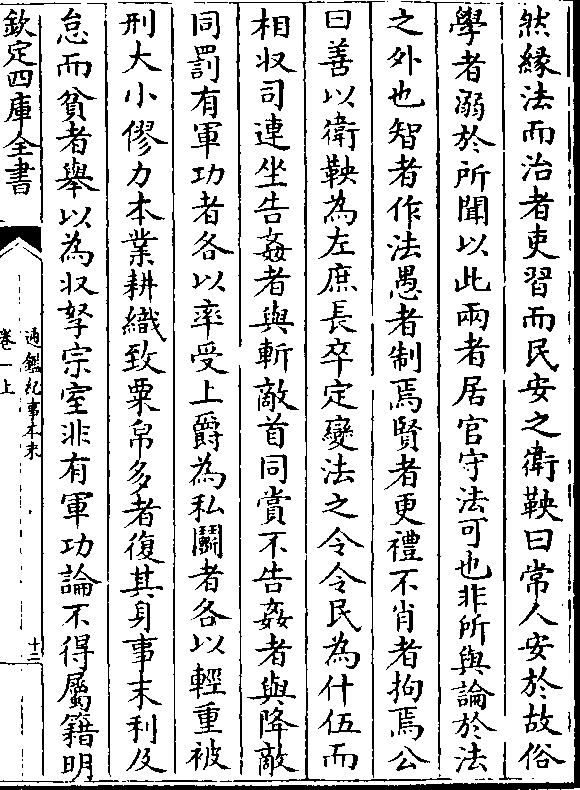 然縁法而治者吏習而民安之衛鞅曰常人安於故俗
學者溺於所聞以此兩者居官守法可也非所與論於法
之外也智者作法愚者制焉賢者更禮不肖者拘焉公
曰善以衛鞅為左庶長卒定變法之令令民為什伍而
相收司連坐告姦者與斬敵首同賞不告姦者與降敵
同罰有軍功者各以率受上爵為私鬭者各以輕重被
刑大小僇力本業耕織致粟帛多者復其身事末利及
怠而貧者舉以為收孥宗室非有軍功論不得屬籍明
欽定四庫全書
通鑑紀事本末
卷一上
十二